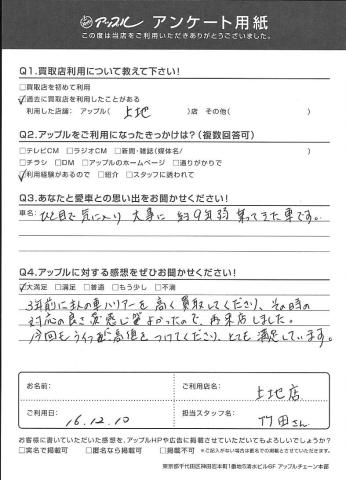 アップル アンケート用紙
この度は当店をご利用いただきありがとうございました。
Q1.買取店利用について教えて下さい!
□買取店を初めて利用
☑過去に買取店を利用したことがある
利用した店舗:アップル( 上地 )店 その他( )
Q2.アップルをご利用になったきっかけは?(複数回答可)
□テレビCM □ラジオCM □新聞・雑誌(媒体名/ )
□チラシ □DM □アップルのホームページ □通りがかりで
☑利用経験があるので □紹介 □スタッフに誘われて
Q3.あなたと愛車との思い出をお聞かせください!
車名:ひと目で気に入り 大事に 約9年弱 乗ってきた車です。
Q4.アップルに対する感想をぜひお聞かせください!
☑大満足 □満足 □普通 □もう少し □不満
3年前に主人の車ハリアーを高く買取してくださり、その時の
対応の良さ、感じ良かったので、再来店しました。
今回もライフを高値をつけてくださり、とても満足しています。
お名前:
ご利用店名: 上地店
ご利用日: 16.12.10
担当スタッフ名: 竹田さん
お客様に書いていただいた感想を、アップルHPや広告に掲載させていただいてもよろしいでしょうか?
□実名で掲載可 □匿名なら掲載可 □掲載不可 ※ご記入がない場合は匿名での掲載とさせていただきます。
東京都千代田区神田岩本町1番地5清水ビル6F アップルチェーン本部